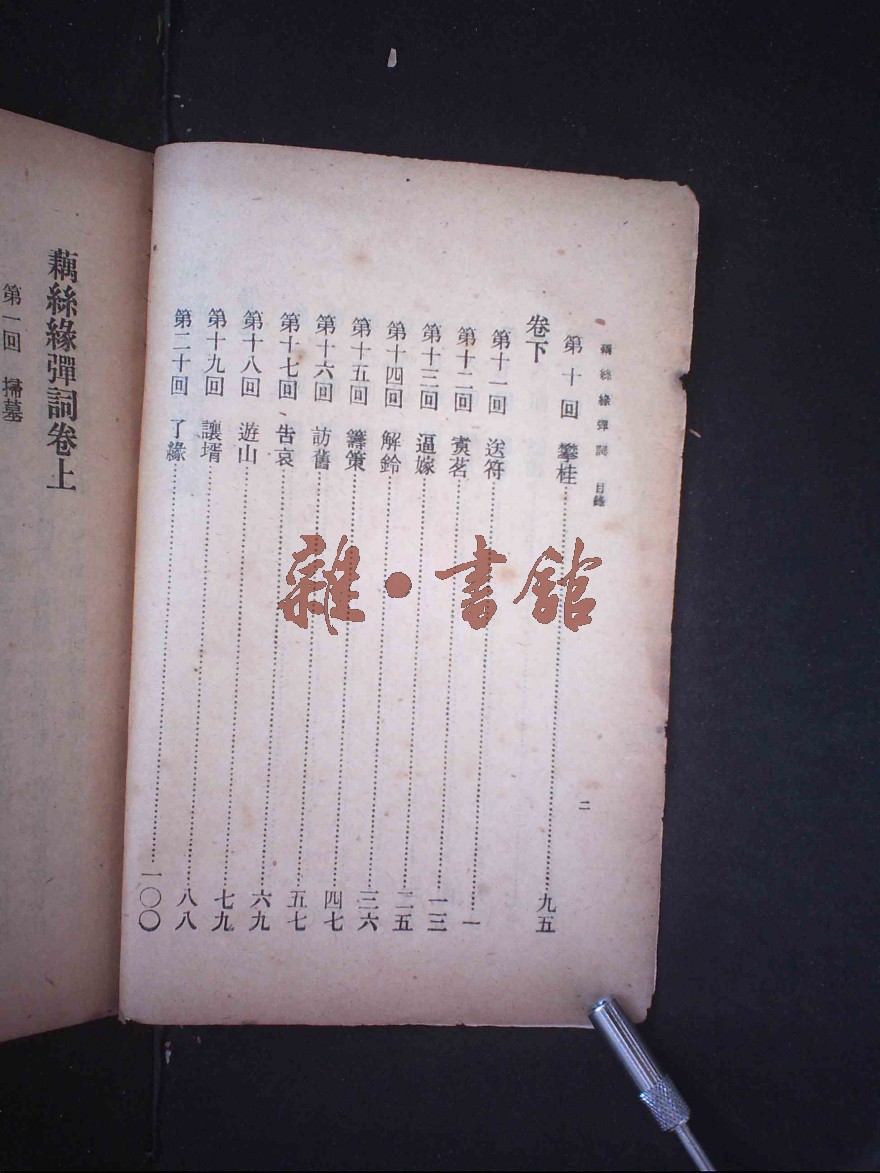 藕絲緣彈詞 目錄 二
第十回 攀桂……九五
卷下
第十一回 送符……一
第十二回 茗……一三
第十三回 逼嫁……二五
第十四回 解鈴……三六
第十五回 籌策……四七
第十六回 訪舊……五七
第十七回 告哀……六九
第十八回 遊山……七九
第十九回 讓壻……八八
第二十回 了緣……一〇〇
藕絲緣彈詞卷上
第一回 掃墓
雜·書館